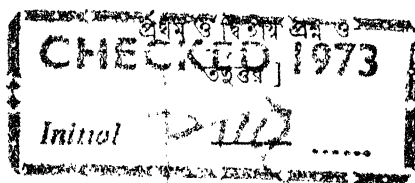 প্রথম ও দ্বিতীয় প্রশ্ন ও
CHECKED 1973
উত্তর ]
Initial ......